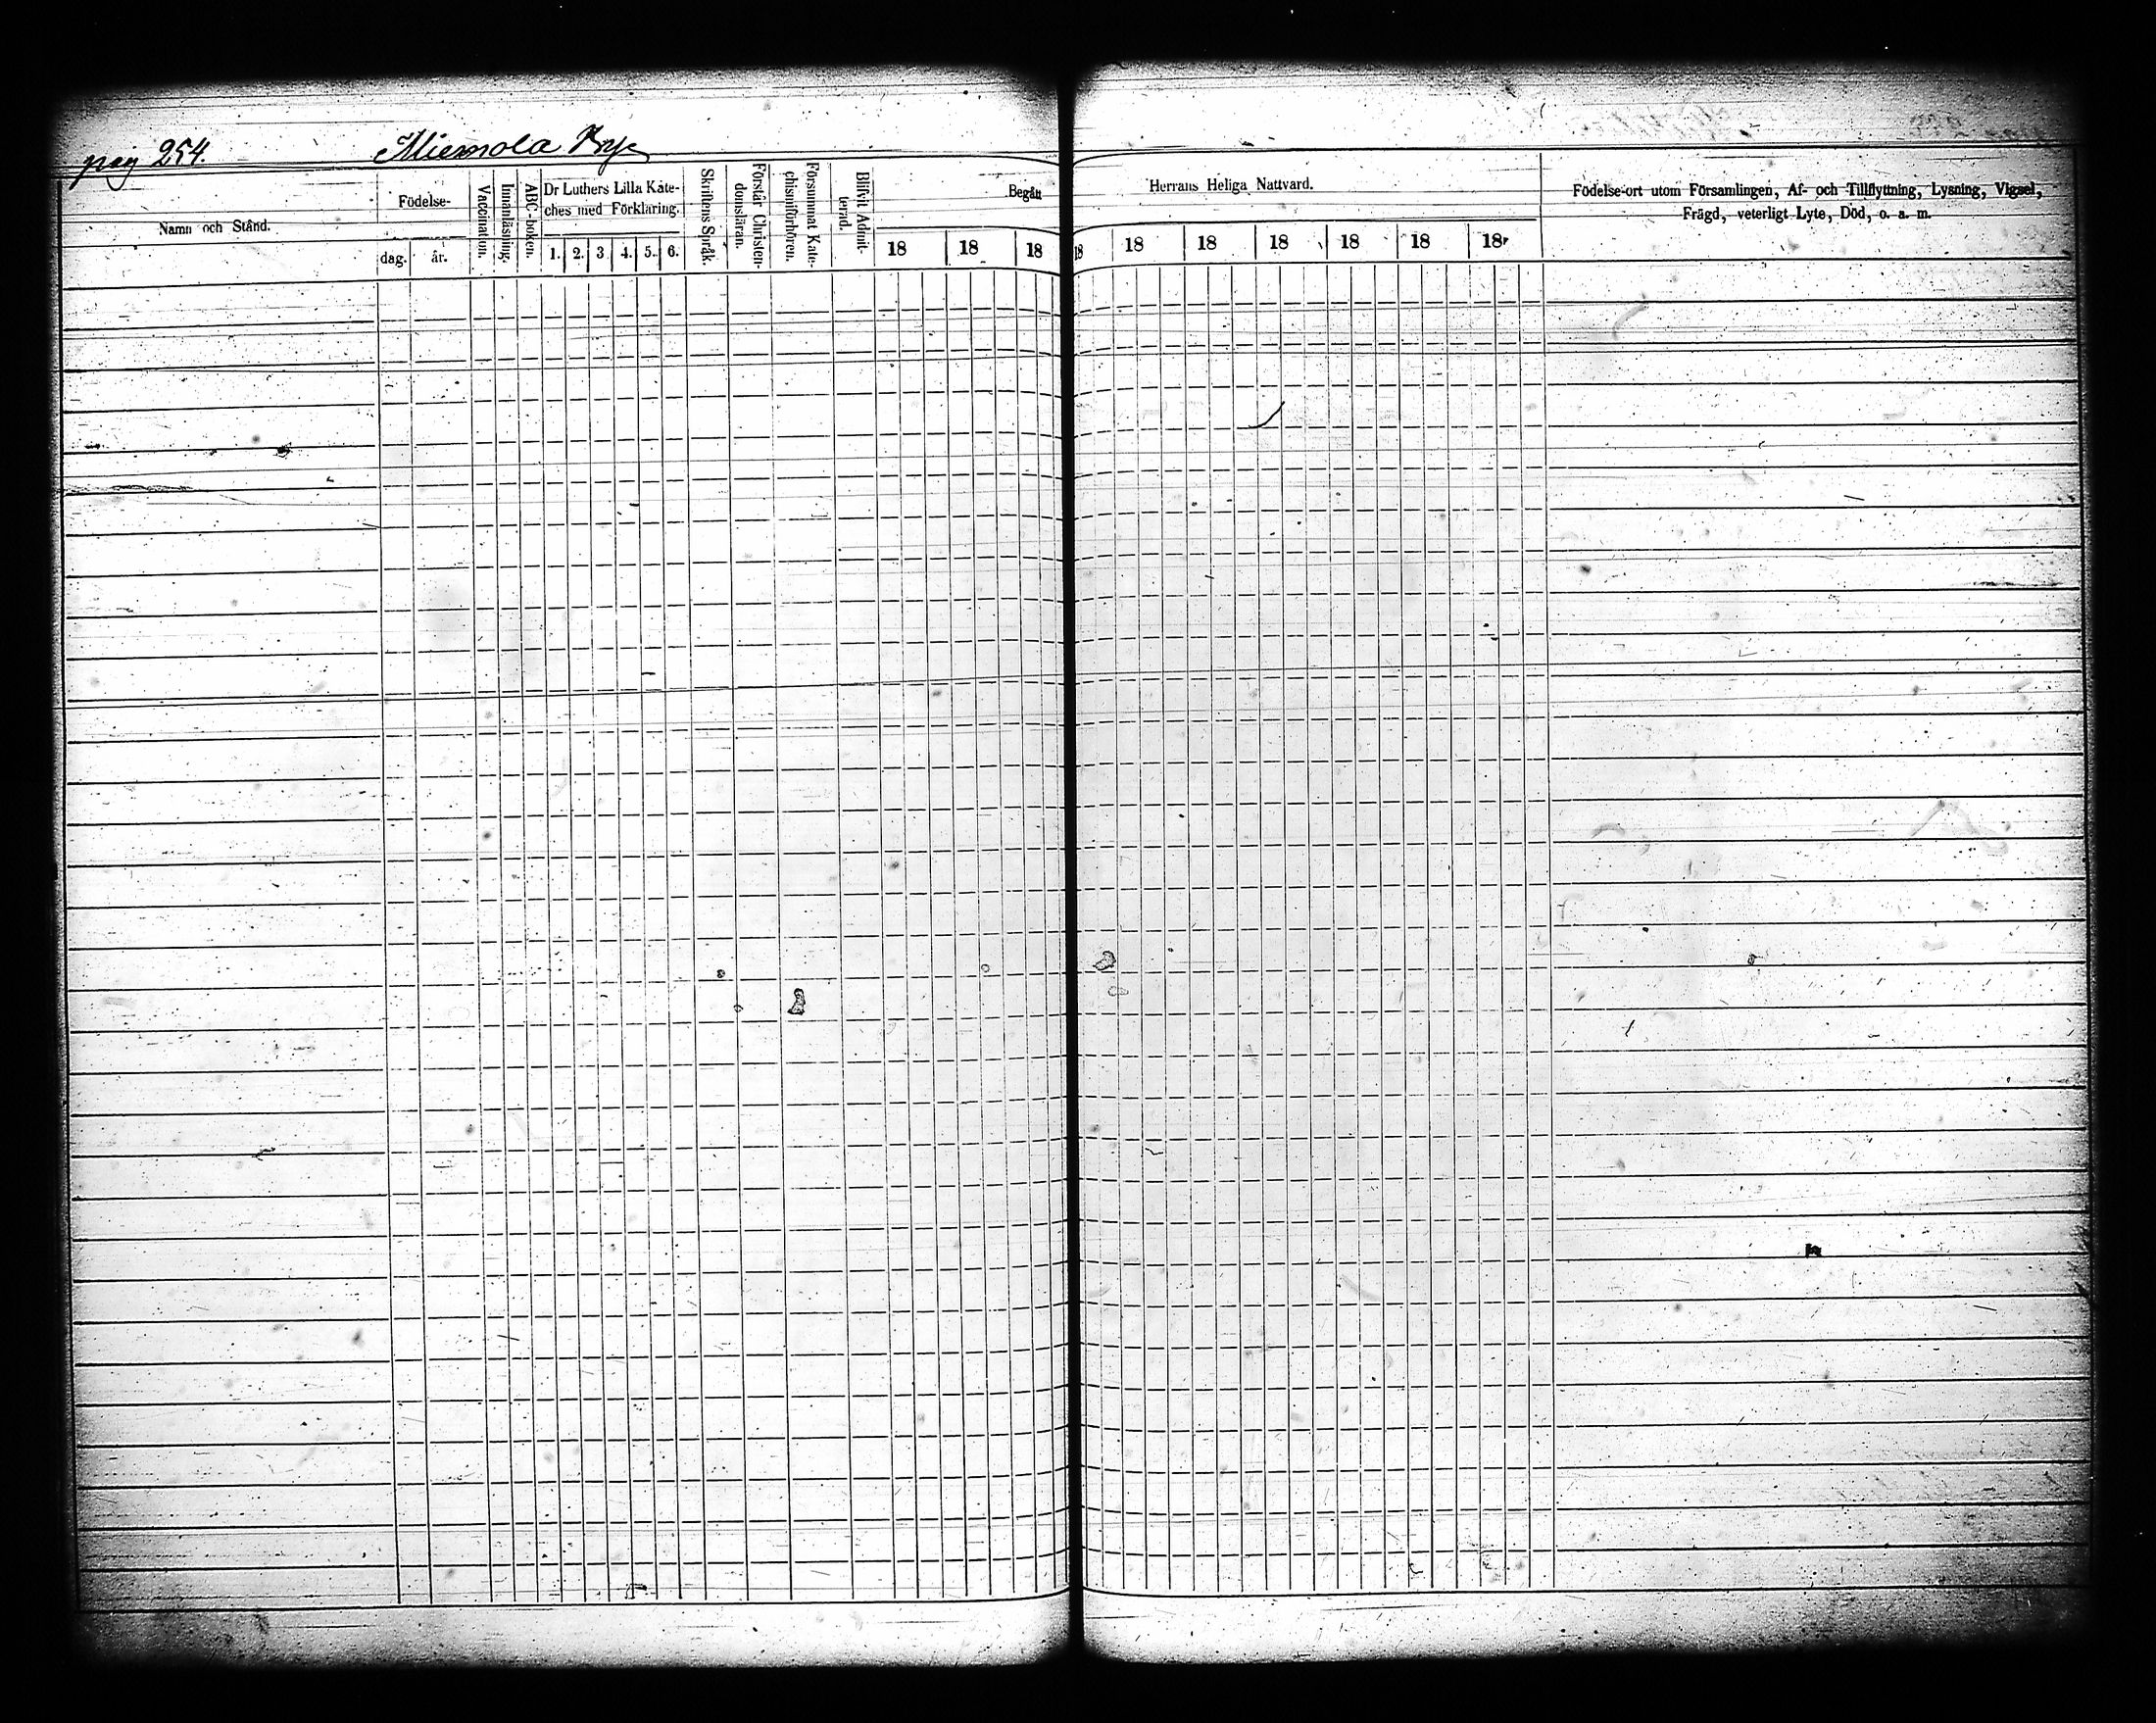 pag 254. Miemola By
Namn och Stånd.
Födelse-
dag. år.
Vaccination.
Innanläsning.
ABC-boken.
Dr Luthers Lilla Kate-
ches med Förklaring.
1. 2. 3 4. 5. 6.
Skriftens Språk.
Förstår Christen-
domsläran.
Försummat Kate-
chismiförhören.
Blifvit Admit-
terad.
Begått Herrans Heliga Nattvard.
18 18 18 18 18 18 18 18 18 18
Födelse-ort utom Församlingen, Af- och Tillflyttning, Lysning, Vigsel,
Frägd, veterligt Lyte, Död, o. a. m.